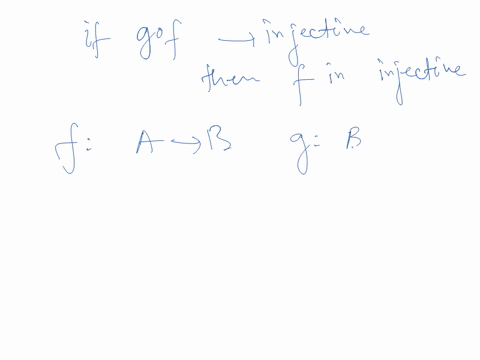 if gof → injective
then f in injective
f: A → B g: B